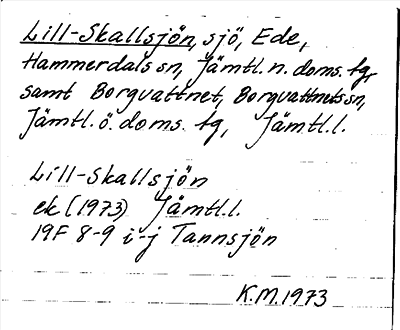 Lill-Skallsjön, sjö, Ede,
Hammerdals sn, Jämtl. n. doms. tg,
samt Borgvattnet, Borgvattnets sn,
Jämtl. ö. doms. tg, Jämtl. l.
Lill-Skallsjön
ek (1973) Jämtl. l.
19F 8-9 i-j Tannsjön
K.M. 1973